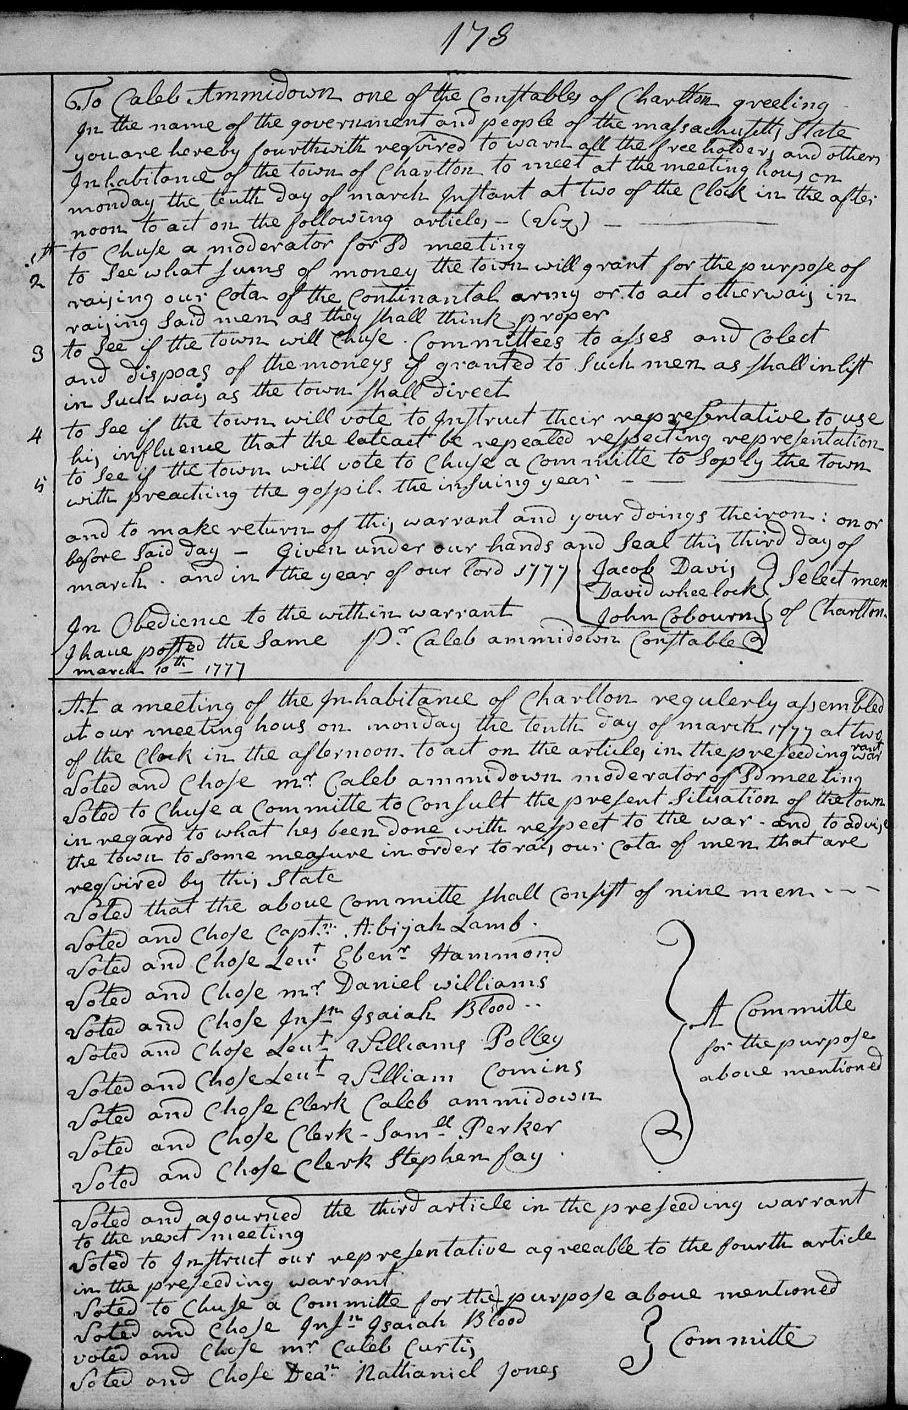 178
To Caleb Ammidown one of the Constables of Charlton greeting
In the name of the government and people of the massachusetts State
you are hereby fourthwith reqvired to warn all the freeholders and others
Inhabitance of the town of Charlton to meet at the meeting hous on
monday the tenth day of march Instant at two of the Clock in the after
noon to act on the following articles - (Viz) -
1st to Chuse a moderator for Sd meeting
2 to See what sums of money the town will grant for the purpose of
raising our Cota of the Continantal army or to act otherwais in
raising Said men as they shall think proper
3 to See if the town will Chuse Committees to asses and Colect
and dispoas of the moneys if granted to Such men as shall inlist
in Such wais as the town shall direct
4 to See if the town will vote to Instruct their representative to use
his influence that the late act be repealed respecting representation
5 to See if the town will vote to Chuse a Committe to Soply the town
with preaching the gospil the insuing year
and to make return of this warrant and your doings theiron : on or
before Said day - Given under our hands and Seal this third day of
march . and in the year of our lord 1777 Jacob Davis
David wheelock
John Cobourn
Select men
of Charlton
In Obedience to the within warrant
I have posted the Same Pr Caleb ammidown Constable
march 10th 1777
At a meeting of the Inhabitance of Charlton regularly assembled
at our meeting hous on monday the tenth day of march 1777 at two
of the Clock in the afternoon to act on the articles in the preseeding warrant
Voted and Chose mr Caleb ammidown moderator of Sd meeting
Voted to Chuse a Committe to Consult the present Sitisation of the town
in regard to what hes been done with respect to the war - and to advise
the town to some measure in order to rais our Cota of men that are
reqvired by this State
Voted that the above Committe shall Consist of nine men - - -
Voted and Chose Captn Abijah Lamb
Voted and Chose Leut Ebenr Hammond
Voted and Chose mr Daniel williams
Voted and Chose Insn Isaiah Blood
Voted and Chose Leut Williams Polley
Voted and Chose Leut William Comins
Voted and Chose Clerk Caleb ammidown
Voted and Chose Clerk - Samll Perker
Voted and Chose Clerk Stephen fay
A Committe
for the purpose
above mentioned
Voted and ajourned the third article in the preseeding warrant
to the next meeting
Voted to Instruct our representative agreeable to the fourth article
in the preseeding warrant
Voted to Chuse a Committe for the purpose above mentioned
Voted and Chose Insn Isaiah Blood
voted and Chose mr Caleb Curtis
Voted and Chose Dean Nathaniel Jones
Committe